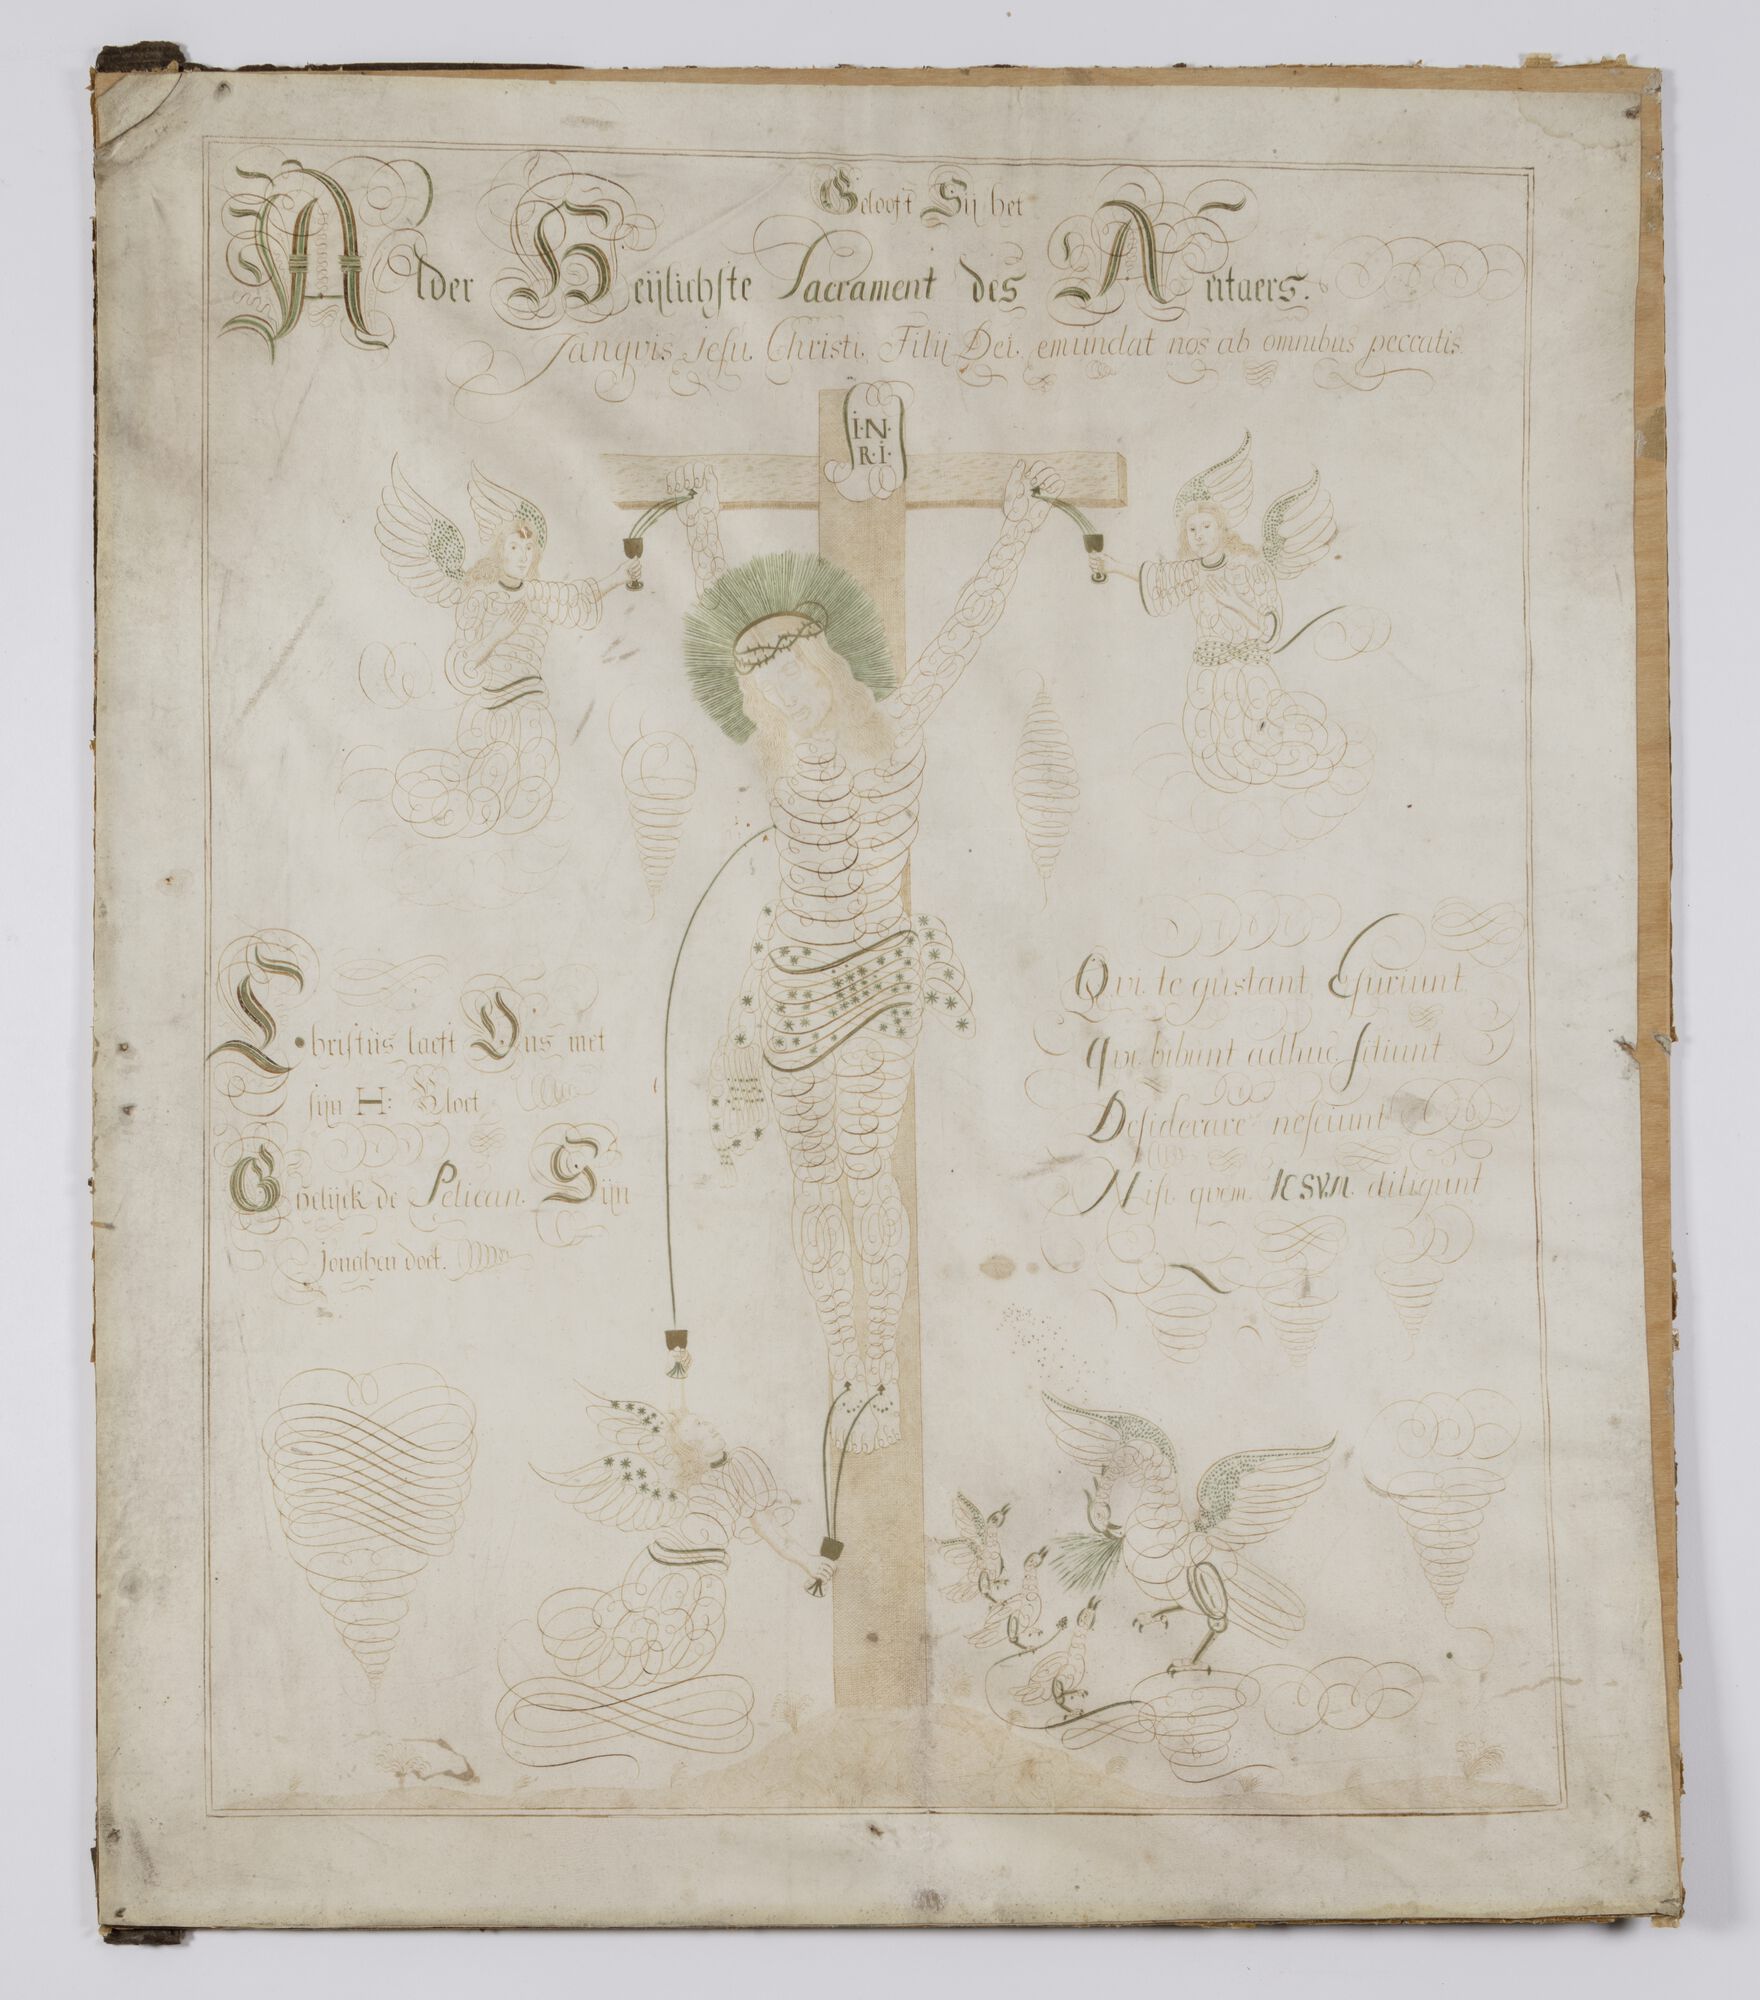 Gelooft Sij het
Alder Heijlichste Sacrament des Autaers.
Sangvis Jesu Christi Filij Dei emundat nos ab omnibus peccatis.
I·N·
R·I·
Christus laeft Ons met
sijn H: Bloet
Ghelijck de Pelican Sijn
Jonghen doet.
Qvi te gustant Esuriunt
qvi bibunt adhuc sitiunt
Desiderare nesciunt
Nisi qvem IESVM diligunt